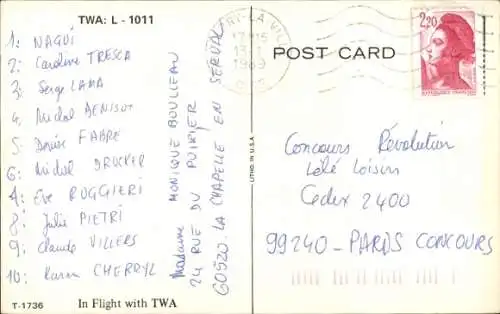 TWA: L - 1011
1: NAGUI
2: Caroline TRESCA
3: Serge LAMA
4: Michel DENISOT
5: Denise FABRE
6: Michel DRUCKER
7: Eve RUGGIERI
8: Julie PIETRI
9: Claude VILLERS
10: Karen CHERRYL
T-1736 In Flight with TWA
Madame MONIQUE BOULLEAU
24 RUE DU PUIRIER
60520 LA CHAPELLE EN SERVAL
LITHO. IN U.S.A.
17H15
1989
POST CARD
2,20
REPUBLIQUE FRANÇAISE
Concours Révolution
Télé Loisirs
Cedex 2400
99240 - PARIS CONCOURS